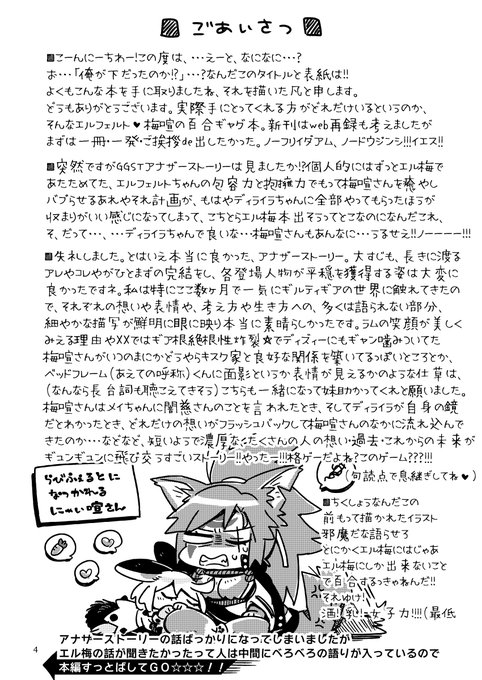 ごあいさつ
こーんにーちわー!この度は、・・・えーと、なになに・・・?
お・・・「俺が下だったのか!?」・・・?なんだこのタイトルと表紙は!!
よくもこんな本を手に取りましたね、それを描いた凡と申します。
どうもありがとうございます。実際手にとってくれる方がどれだけいるというのか、
そんなエルフェルト♥梅喧の百合ギャグ本。新刊はweb再録も考えましたが
まずは一冊・一発・ご挨拶de出したかった。ノーフリイダアム、ノードウジンシ!!!イエス!!
突然ですがGGSTアナザーストーリーは見ましたか!?個人的にはずっとエル梅で
あたためてた、エルフェルトちゃんの包容力と抱擁力でもって梅喧さんを癒やし
バブらせるあれやそれ計画が、もはやディライラちゃんに全部やってもらったほうが
収まりがいい感じになってしまって、こちとらエル梅本出そうってとこなのになんだこれ、
そ、だって・・・、・・・ディライラちゃんで良いな・・・梅喧さんもあんなに・・・うるせえ!!ノーーーー!!!
失礼しました。とはいえ本当に良かった、アナザーストーリー。大すじも、長きに渡る
アレやコレやがひとまずの完結をし、各登場人物が平穏を獲得する姿は大変に
良かったですネ。私は特にここ数ヶ月で一気にギルティギアの世界に触れてきたの
で、それぞれの想いや表情や、考え方や生き方への、多くは語られない部分、
細やかな描写が鮮明に眼に映り本当に素晴らしかったです。ラムの笑顔が美しく
みえる理由やXXではギア根絶根性炸裂★でディズィーにもギャン噛みついてた
梅喧さんがいつのまにかどうやらキスク家と良好な関係を築いてるっぽいところとか、
ベッドフレーム(あえての呼称)くんに面影というか表情が見えるかのような仕草は、
(なんなら長台詞も聴こえてきそう)こちらも一緒になって妹助かってくれと願いました。
梅喧さんはメイちゃんに闇慈さんのことを言われたとき、そしてディライラが自身の鏡
だとわかったとき、どれだけの想いがフラッシュバックして梅喧さんのなかに流れ込んで
きたのか・・・などなど、短いようで濃厚なたくさんの人の想い・過去・これからの未来が
ギュンギュンに飛び交うすごいストーリー!!やったー!!!格ゲーだよね?このゲーム???!!!
(句読点で息継ぎしてね♥)
らびふぇるとに
なつかれる
にゃい喧さん
ちくしょうなんだこの
前もって描かれたイラスト
邪魔だな語らせろ
とにかくエル梅にはじゃあ
エル梅にしか出来ないこと
で百合するっきゃねんだ!!
それゆけ!
酒!乳!女子力!!!!(最低
アナザーストーリーの話ばっかりになってしまいましたが
エル梅の話が聞きたかったって人は中間にべろべろの語りが入っているので
本編すっとばしてGO☆☆☆!!
4